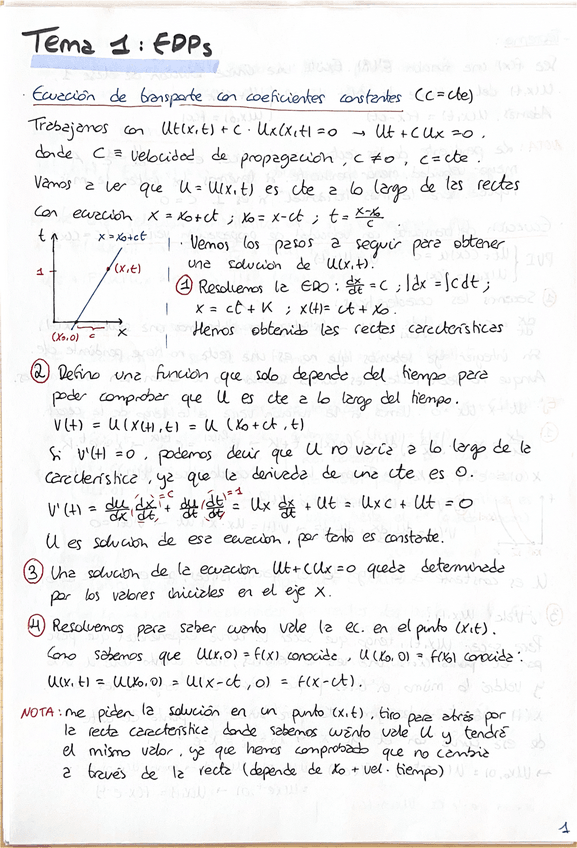 Tema 1: EDPs
· Ecuación de transporte con coeficientes constantes (c=cte)
Trabajamos con Ut(x,t) + c · Ux(x,t) = 0 → Ut + CUx = 0,
donde C ≡ velocidad de propagación, c ≠ 0, c = cte.
Vamos a ver que U = U(x,t) es cte a lo largo de las rectas
con ecuación x = x₀+ct ; x₀ = x-ct ; t = (x-x₀)/c
t
x = x₀+ct
1
(x,t)
(x₀,0)
c
x
· Vemos los pasos a seguir para obtener
una solución de U(x,t).
① Resolvemos la EDO: dx/dt = c ; ∫dx = ∫cdt ;
x = ct + K ; x(t) = ct + x₀.
Hemos obtenido las rectas características
② Defino una función que solo depende del tiempo para
poder comprobar que U es cte a lo largo del tiempo.
V(t) = U(x(t),t) = U(x₀+ct,t)
Si V'(t) = 0, podemos decir que U no varía a lo largo de la
característica, ya que la derivada de una cte es 0.
V'(t) = du/dx · dx/dt (=c) + du/dt · dt/dt (=1) = Ux dx/dt + Ut = Ux c + Ut = 0
U es solución de esa ecuación, por tanto es constante.
③ Una solución de la ecuación Ut+CUx=0 queda determinada
por los valores iniciales en el eje x.
④ Resolvemos para saber cuánto vale la ec. en el punto (x,t).
Como sabemos que U(x,0) = f(x) conocida, U(x₀,0) = f(x₀) conocida:
U(x,t) = U(x₀,0) = U(x-ct,0) = f(x-ct).
NOTA: me piden la solución en un punto (x,t), tiro para atrás por
la recta característica donde sabemos cuánto vale U y tendrá
el mismo valor, ya que hemos comprobado que no cambia
a través de la recta (depende de x₀ + vel · tiempo)
1